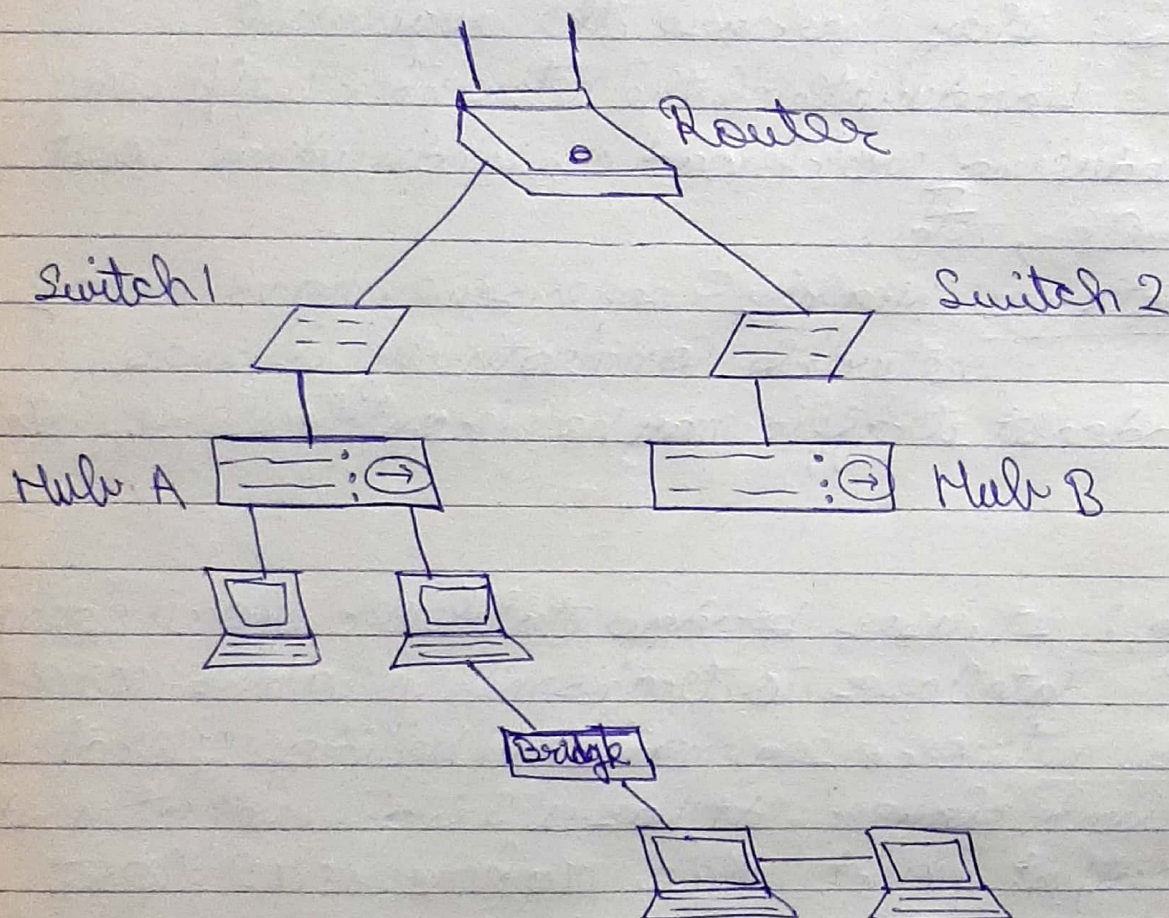 Router
Switch 1
Switch 2
Hub A
Hub B
Bridge